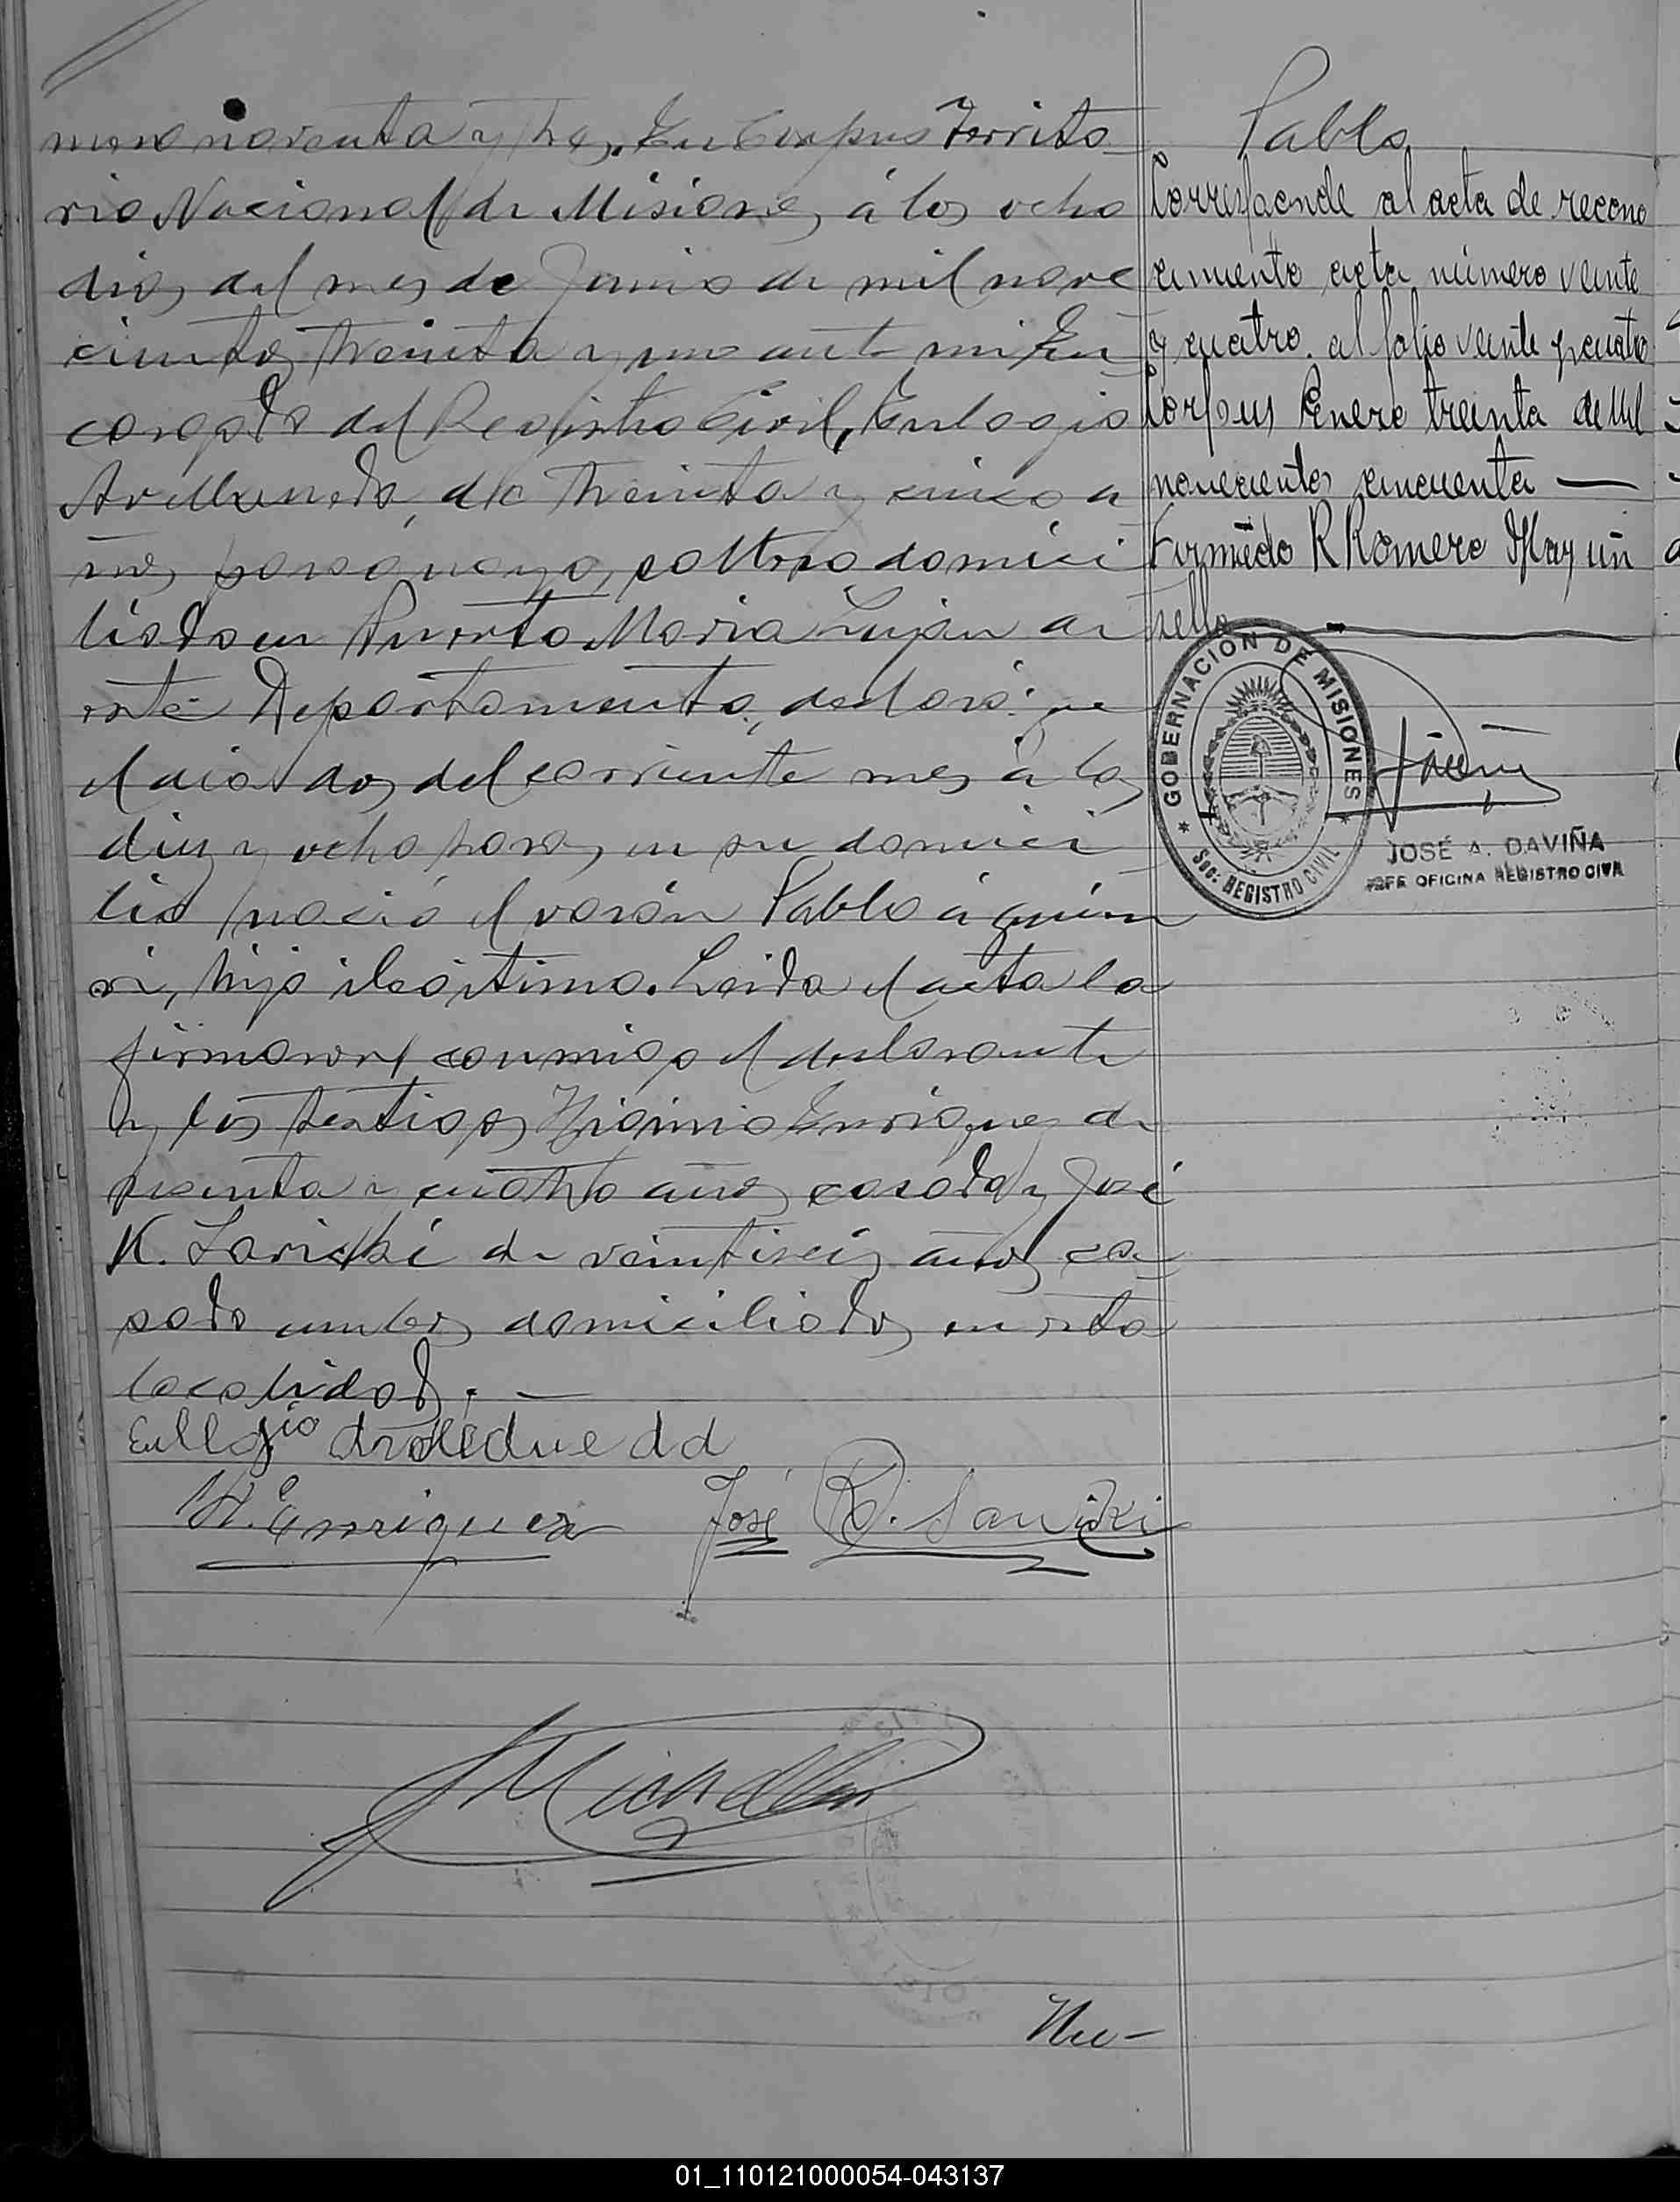 mero noventa y tres. En Corpus Territo
rio Nacional de Misiones, á los ocho
dias del mes de Junio de mil nove
cientos treinta y uno ante mi En
cargado del Registro Civil, Eulogio
Avellaneda, de treinta y cinco a
ños, paraguayo, soltero domici
liado en Puerto Maria Luján de
este Departamento, declaró: que
el dia dos del corriente mes á las
diez y ocho horas, en su domici
lio nació el varón Pablo á quien
vi, hijo ilegitimo. Leida el acta la
firmaron conmigo el declarante
y los testigos Higinio Enriquez de
sesenta y cuatro años casado y José
K. Savicki de veintiseis años ca
sado ambos domiciliados en esta
localidad. —
Eullogio
H. Enriquez José K. Sawicki
Nu-
Pablo
Corresponde al acta de recono
cimiento acta número veinte
y cuatro. al folio veinte y cuatro
Corpus Enero treinta de Mil
novecientos cincuenta —
Firmado R Romero Hay un
sello —
GOBERNACIÓN DE MISIONES
Sec: REGISTRO CIVIL
JOSÉ A. DAVIÑA
JEFE OFICINA REGISTRO CIVIL
01_110121000054-043137